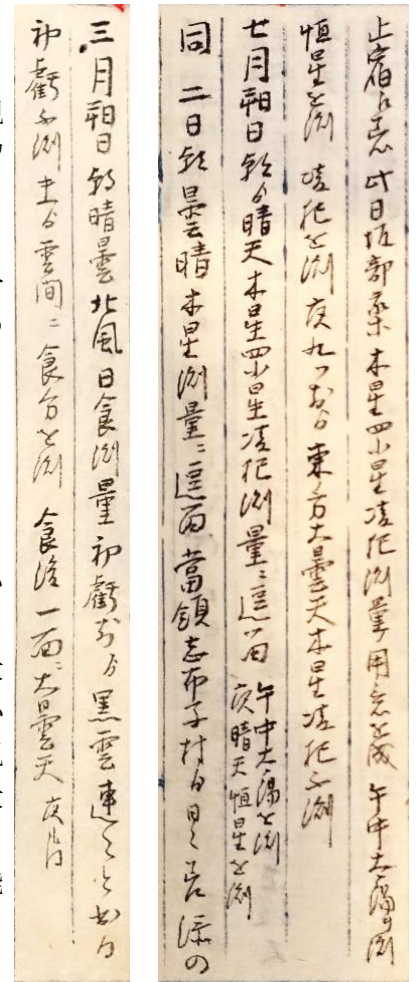 止宿ニ志 此日坂部 木星四小星凌犯測量用意を成 午中太陽ヲ測
恒星を測 凌犯を測 夜九つ前ゟ東方大曇天木星凌犯不測
七月朔日 朝ゟ晴天 木星四小星凌犯測量ニ逗留 午中太陽を測
夜晴天恒星を測
同 二日 朝曇晴 木星測量ニ逗留 當領志布子村ゟ日々
三月朔日 朝晴曇 北風 日食測量 初虧前ゟ黒雲連
初虧不測 雲間ニ食分を測 食後一面ニ大曇天 夜